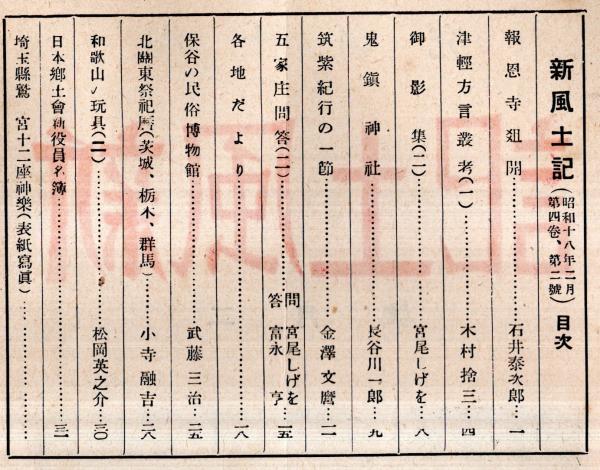 新風土記(昭和十八年二月 第四卷、第二號)目次
報恩寺爼開…………石井泰次郎…一
津輕方言叢考(一)…………木村捨三…四
御影集(二)…………宮尾しげを…八
鬼鎭神社…………長谷川一郎…九
筑紫紀行の一節…………金澤文麿…二
五家庄問答(二)…………問 宮尾しげを 答 富永亨…一五
各地だより…………一八
保谷の民俗博物館…………武藤三治…二五
北關東祭祀曆(茨城、栃木、群馬)…………小寺融吉…二八
和歌山ノ玩具(二)…………松岡英之介…三〇
日本鄕土會新役員名簿…………三一
埼玉縣鷲宮十二座神樂(表紙寫眞)…………
新風土記